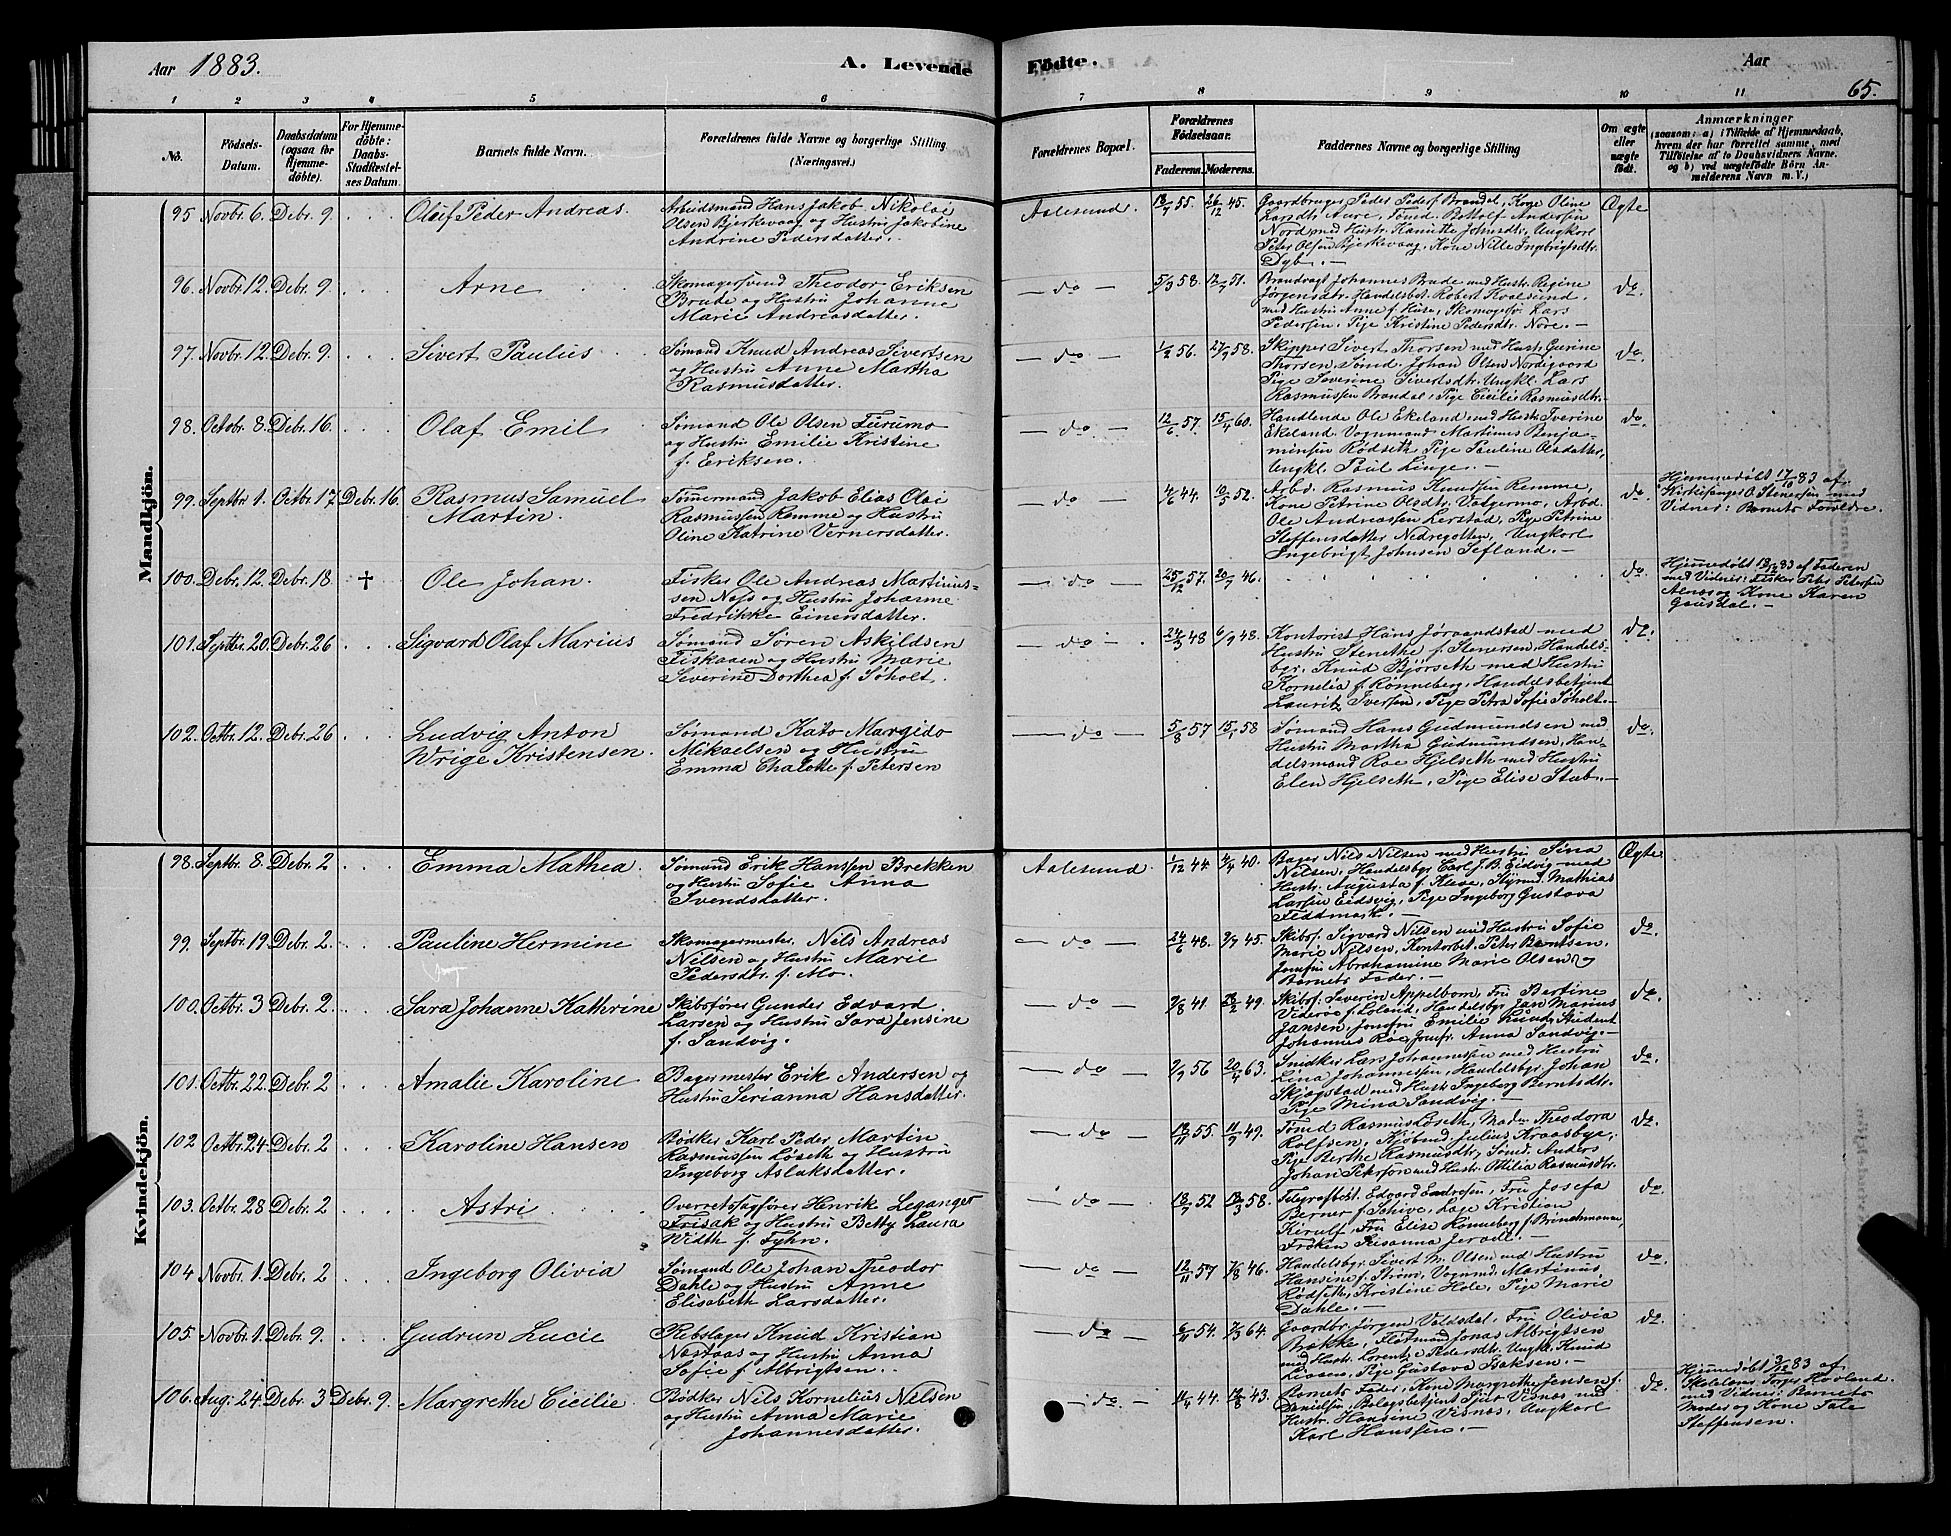 Aar 1883.
A. Levende Födte.
Aar
65.
1 2 3 4 5 6 7 8 9 10 11
No.
Födsels-Datum.
Daabsdatum (ogsaa for Hjemme-döbte).
For Hjemme-döbte: Daabs-Stadfæstel-ses Datum.
Barnets fulde Navn.
Forældrenes fulde Navne og borgerlige Stilling (Næringsvei.)
Forældrenes Bopæl.
Forældrenes Födselsaar.
Faderens. Moderens.
Faddernes Navne og borgerlige Stilling
Om ægte eller uægte født.
Anmærkninger
(saasom: a) i Tilfælde af Hjemmedaab,
hvem der har forrettet samme, med
Tilföielse af to Daabsvidners Navne,
og b) ved uægtefödte Börn An-
melderens Navn m.V.)
Mandkjön.
95. Novbr. 6. Debr. 9. Oluf Peder Andreas. Arbeidsmand Hans Jakob Nikolai
Olsen Bjerkevaag og Hustru Jakobine
Andrine Pedersdatter.
Aalesund. 55. 26/12 45. Gaardbruger Peder Peders. Brandal, Kone Oline
Larsdtr. Aure, Tømd. Bottolf Andersen
Nord med Hustr. Kanutte Johnsdtr., Ungkarl
Peter Olsen Bjerkevaag, Kone Nille Ingebrigtsdtr.
Dyb. —
Ægte
96. Novbr. 12. Debr. 9. Arne Skomagersvend Theodor Eriksen
Brude og Hustru Johanne
Marie Andreasdatter.
— do — 5/3 58. 12/7 51. Brandvagt Johannes Brude med Hustr. Regine
Jørgensdtr. Handelsbet. Robert Kvalsund
med Hustru Anne f. Huse, Skomagersv. Lars
Pedersen, Pige Kristine Pedersdtr. Nore. —
do.
97. Novbr. 12. Debr. 9. Sivert Paulus Sømand Knud Andreas Sivertsen
og Hustru Anne Martha
Rasmusdatter.
— do — 1/2 56. 27/9 58. Skipper Sivert Thorsen med Hustr. Gurine
Thorsen, Sømd. Johan Olsen Nordigaard
Pige Severine Sivertsdtr. Ungkl. Lars
Rasmussen Brandal, Pige Cicilie Rasmusdtr. —
do.
98. Octobr. 8. Debr. 16. Olaf Emil Sømand Ole Olsen Furumo
og Hustru Emilie Kristine
f. Eriksen.
— do — 12/6 57. 15/4 60. Handlende Ole Ekeland med Hustr. Iverine
Ekeland. Vognmand Martinus Benja-
minsen Rødseth, Pige Pauline Olsdatter,
Ungkl. Paul Linge. —
do.
99. Septbr. 1. Octbr. 17. Debr. 16. Rasmus Samuel
Martin. Tømmermand Jakob Elias Olai
Rasmussen Remme og Hustru
Oline Katrine Vernersdatter.
— do — 4/6 44. 10/5 52. Arbd. Rasmus Knudsen Remme,
Kone Petrine Olsdtr. Valgermo, Arbd.
Ole Andreassen Lerstad, Pige Petrine
Steffensdatter Nedregotten, Ungkarl
Ingebrigt Johnsen Sefland. —
do. Hjemmedøbt 17/10 83 af
Kirkesanger O. Stenersen med
Vidner: Barnets Forældre.
100. Debr. 12. Debr. 18. † Ole Johan. Fisker Ole Andreas Martinus-
sen Næss og Hustru Johanne
Fredrikke Einersdatter.
— do — 25/12 57. 20/7 46.
do. Hjemmedøbt 83 af Faderen
med Vidner: Fisker Peter Petersen
Alnæs og Kone Karen
Gausdal. —
101. Septbr. 20. Debr. 26 Sigvard Olaf Marius Sømand Søren Askildsen
Fiskaaen og Hustru Marie
Severine Dorthea f. Søholt.
— do — 24/3 48 6/9 48. Kontorist Hans Jøraandstad med
Hustru Stenethe f. Stenersen, Handels-
bgr. Knud Bjørseth med Hustru
Kornelia f. Rønneberg, Handelsbetjent
Lauritz Iversen, Pige Petra Sofie Søholt. —
do.
102. Octbr. 12. Debr. 26 Ludvig Anton
Wrige Kristensen. Sømand Kato Margido
Mikaelsen og Hustru
Emma Chalotte f. Petersen
— do — 5/8 57 15/1 58 Sømand Hans Gudmundsen med
Hustru Martha Gudmundsen, Han-
delsmand Roe Hjelseth med Hustru
Elen Hjelseth, Pige Elise Stub. —
do.
Kvindekjön.
98. Septbr. 8. Debr. 2 Emma Mathea. Sømand Erik Hanssen Brekken
og Hustru Sofie Anna
Svendsdatter.
Aalesund 1/12 44. 4/4 40. Bager Nils Nilsen med Hustru Sina
Nilsen, Handelsbgr. Carl J. B. Eidvig med
Hustr. Augusta f. Kleve, Styrmd. Mathias
Larsen Eidsvig, Pige Ingeborg Gustava
Feddmark. —
Ægte
99. Septbr. 19. Debr. 2. Pauline Hermine Skomagermester, Nils Andreas
Nilsen og Hustru Marie
Pedersdtr. f. Mo.
— do — 24/6 48. 9/7 45. Skibsf. Sigvard Nilsen med Hustru Sofie
Marie Nilsen, Kontorbet. Peter Berntsen,
Jomfru Abrahamine Marie Olsen og
Barnets Fader. —
do.
100. Octbr. 3 Debr. 2. Sara Johanne Kathrine Skibsfører Gunder Edvard
Larsen og Hustru Sara Jensine
f. Sandvig.
— do — 9/8 41. 49. Skibsf. Severin Appelbom, Fru Bertine
Viderøe f. Loland, Handelsbgr. Jan Marius
Jansen, Jomfru Emilie Lund, Student
Johannes Roe, Jomfr. Anna Sandvig. —
do.
101. Octbr. 22. Debr. 2 Amalie Karoline Bagermester Erik Andersen og
Hustru Serianna Hansdatter.
— do — 2/9 56 20/4 63. Snidker Lars Johannessen med Hustru
Lina Johannesen, Handelsbgr. Johan
Skjegstad med Hustr. Ingeborg Berntsdtr.
Pige Mina Sandvig. —
do.
102 Octbr. 24. Debr. 2 Karoline Hansen Bødker Karl Peder Martin
Rasmussen Løseth og Hustru
Ingeborg Aslaksdatter.
— do — 55. 11/9 49. Tømd Rasmus Løseth, Madm Theodora
Rolfsen, Kjøbmd. Julius Kraasbye,
Pige Berthe Rasmusdtr., Sømd. Anders
Johan Peterson med Hustr. Ottilia Rasmusdtr.
do.
103. Octbr. 28 Debr. 2 Astri Overretssagfører Henrik Leganger
Frisak og Hustru Betty Laura
Width f. Fyhn.
do — 18/7 52 58. Telegrafbest. Edvard, Fru Josefa
Berner f. Schive, Læge Kristian
Kierulf, Fru Elise Rønneberg f. Brinchmann,
Frøken Susanna —
do.
104 Novbr. 1. Debr. 2 Ingeborg Olivia Sømand Ole Johan Theodor
Dahle og Hustru Anne
Elisabeth Larsdatter.
— do — 12/11 57 7/8 46. Handelsbgr. Sivert M. Olsen med Hustru
Hansine f. Strøm, Vognmd. Martinus
Rødseth, Kristine Hole, Pige Marie
Dahle. —
do.
105. Novbr. 1. Debr. 9. Gudrun Lucie Rebslager Knud Kristian
Nastaas og Hustru Anna
Sofie f. Albrigtsen.
— do — 6/11 54. 7/3 64. Gaardbr. Jørgen Valdsdal, Fru Olivia
Brekke, Flotmand Jonas Albrigtsen
med Hustr. Lorentze Pedersdtr. Ungk. Knud
Pige Gustava Isaksen. —
do.
106. Aug. 24. Debr. 3 Debr. 9. Margrethe Cicilie. Bødker Nils Kornelius Nilsen
og Hustru Anna Marie
Johannesdatter.
— do. — 11/4 44. 43. Barnets Fader, Kone Margrethe Jensen f.
Danielsen, Bolagsbetjent Sjur Visnæs med
Hustr. Hansine Visnæs, Ungkarl
Karl Hanssen. —
do. Hjemmedøbt 3/12 83 af
Skolelærer Torger Hovland
med Vidner: Barnets
Moder og Kone
Steffensen.